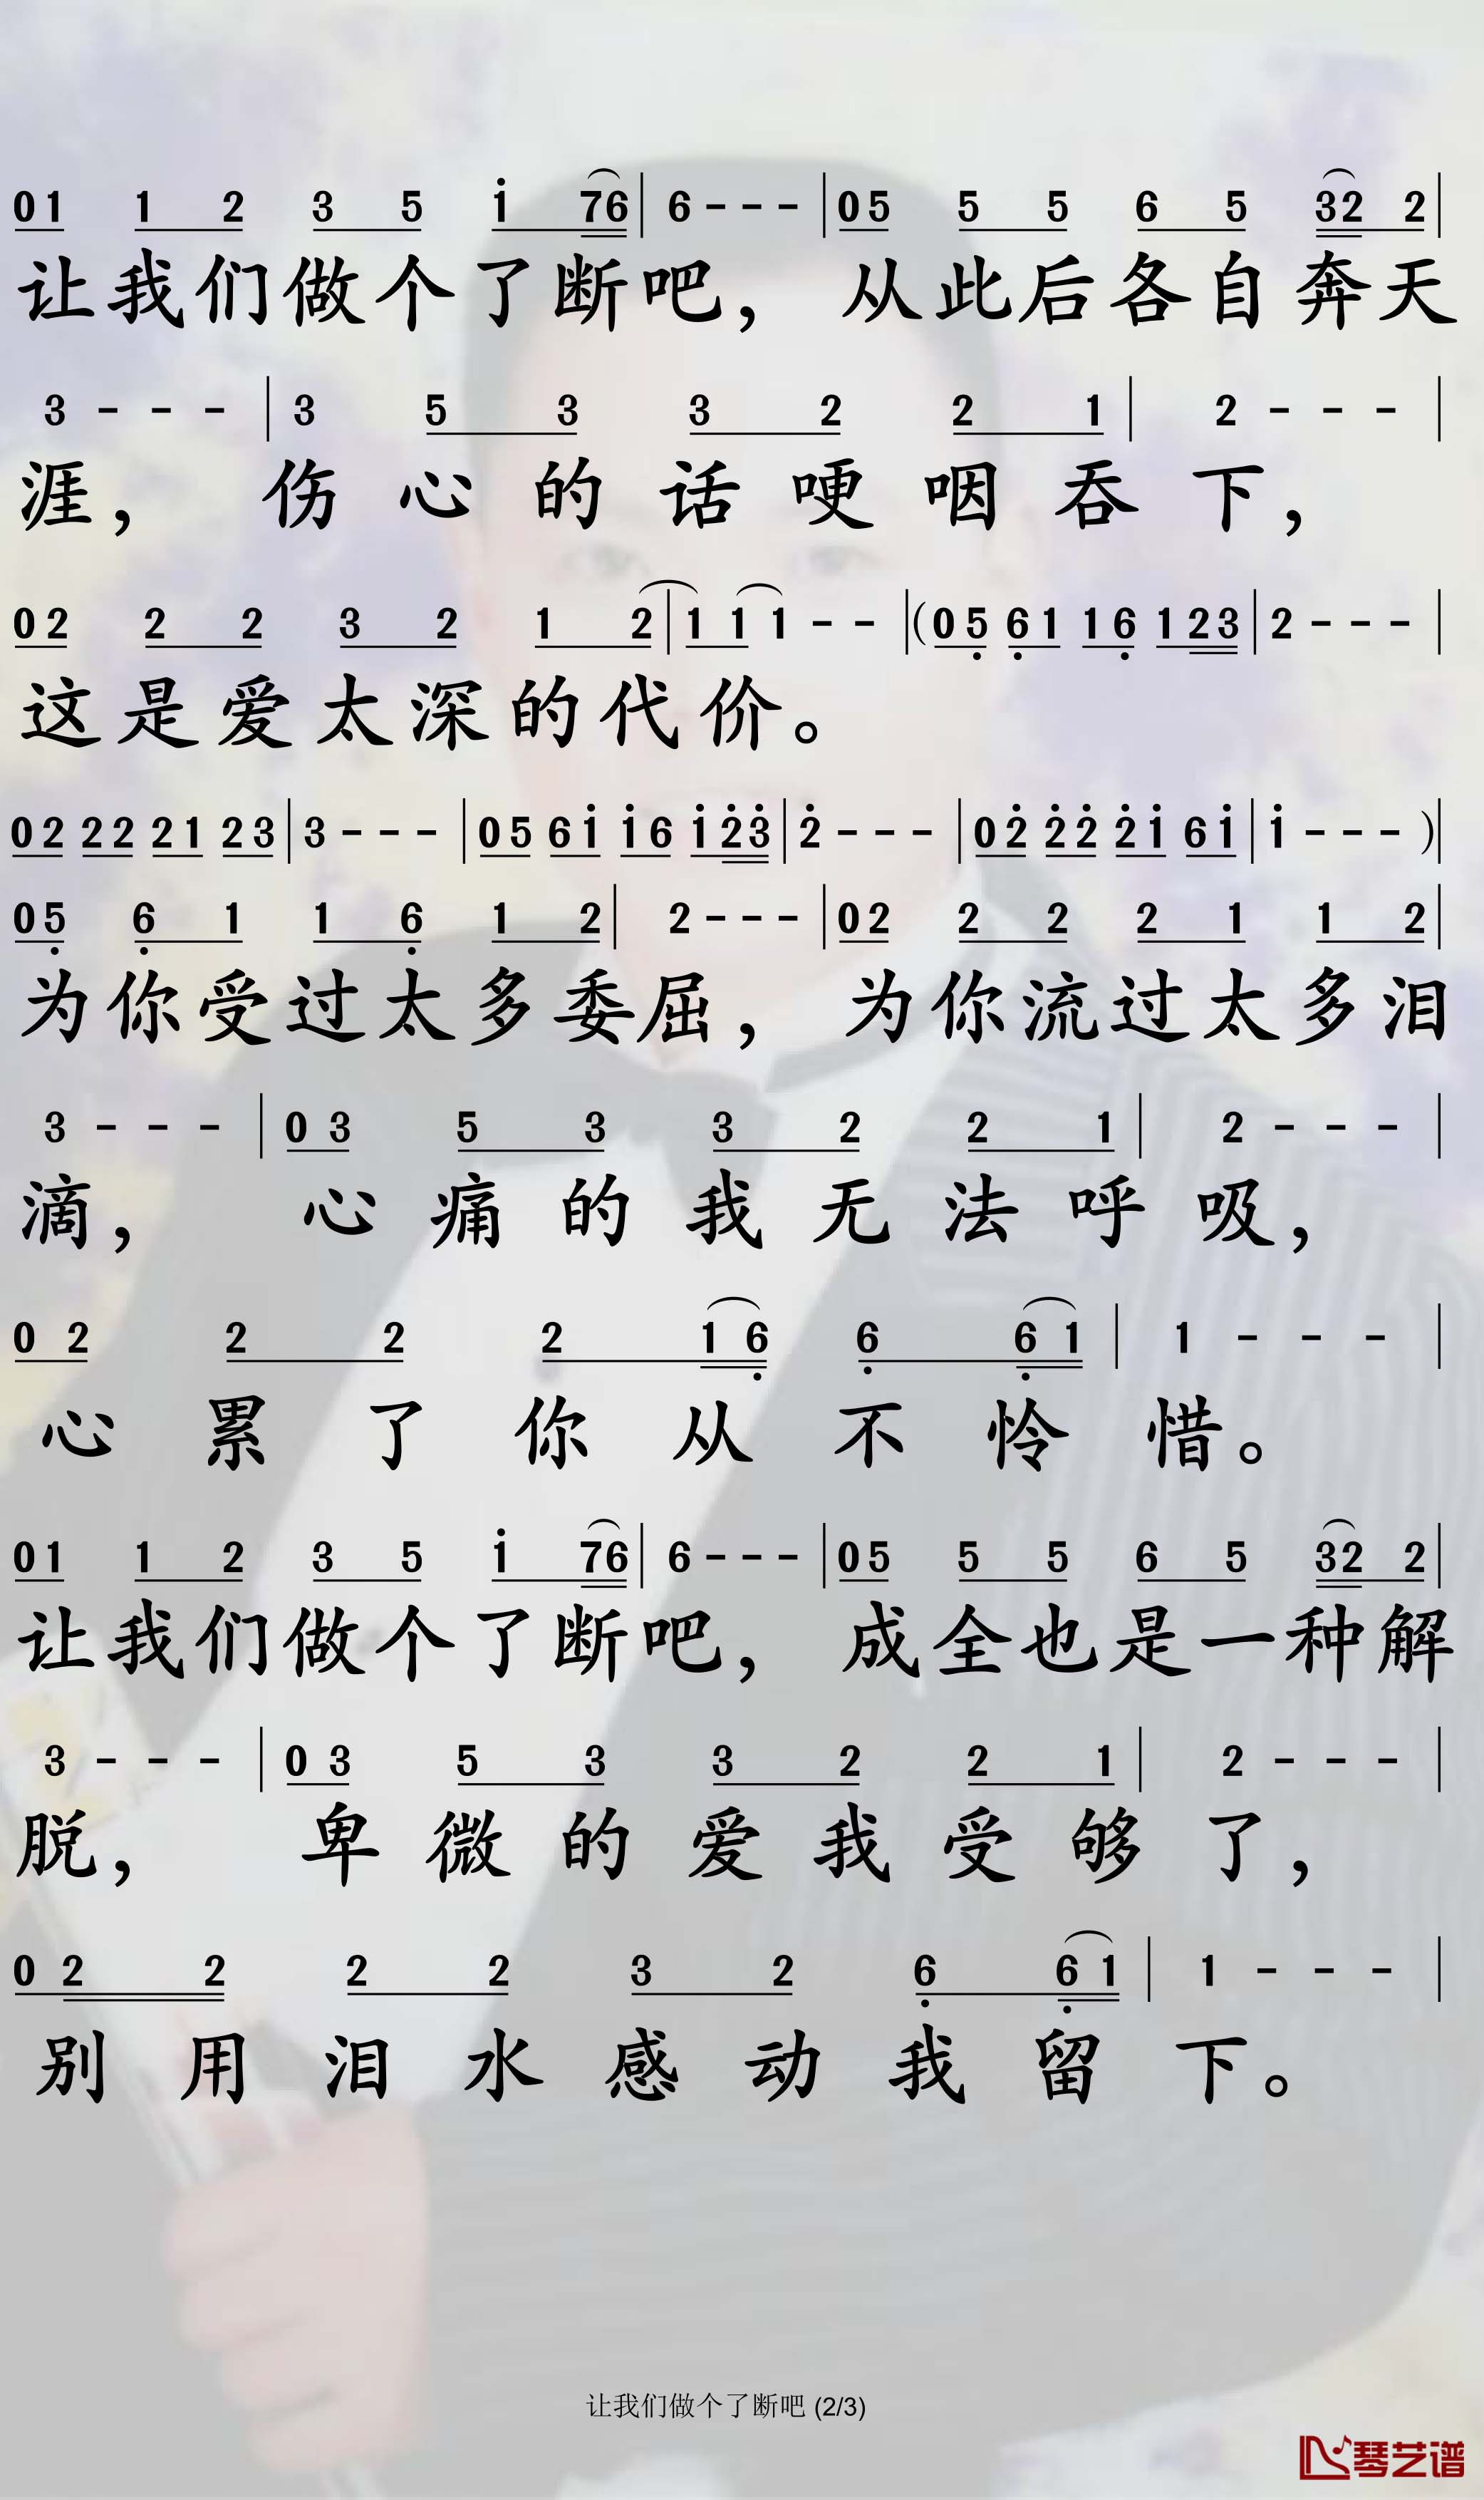 01 1 2 3 5 i 76 | 6 - - - | 05 5 5 6 5 32 2 |
让我们做个了断吧，从此后各自奔天
3 - - - | 3 5 3 3 2 2 1 | 2 - - - |
涯，伤心的话哽咽吞下，
02 2 2 3 2 1 2 | 1 1 1 - - | (05 61 16 123 | 2 - - - |
这是爱太深的代价。
02 22 21 23 | 3 - - - | 05 6i i6 i23 | 2 - - - | 02 22 2i 6i | i - - - ) |
05 6 1 1 6 1 2 | 2 - - - | 02 2 2 2 1 1 2 |
为你受过太多委屈，为你流过太多泪
3 - - - | 0 3 5 3 3 2 2 1 | 2 - - - |
滴，心痛的我无法呼吸，
0 2 2 2 2 1 6 6 6 1 | 1 - - - |
心累了你从不怜惜。
01 1 2 3 5 i 76 | 6 - - - | 05 5 5 6 5 32 2 |
让我们做个了断吧，成全也是一种解
3 - - - | 0 3 5 3 3 2 2 1 | 2 - - - |
脱，卑微的爱我受够了，
0 2 2 2 2 3 2 6 6 1 | 1 - - - |
别用泪水感动我留下。
让我们做个了断吧 (2/3)
琴艺谱